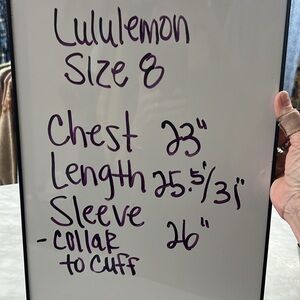 Lululemon
Size 8
Chest 23"
Length 25.5"/31"
Sleeve
- collar to cuff 26"